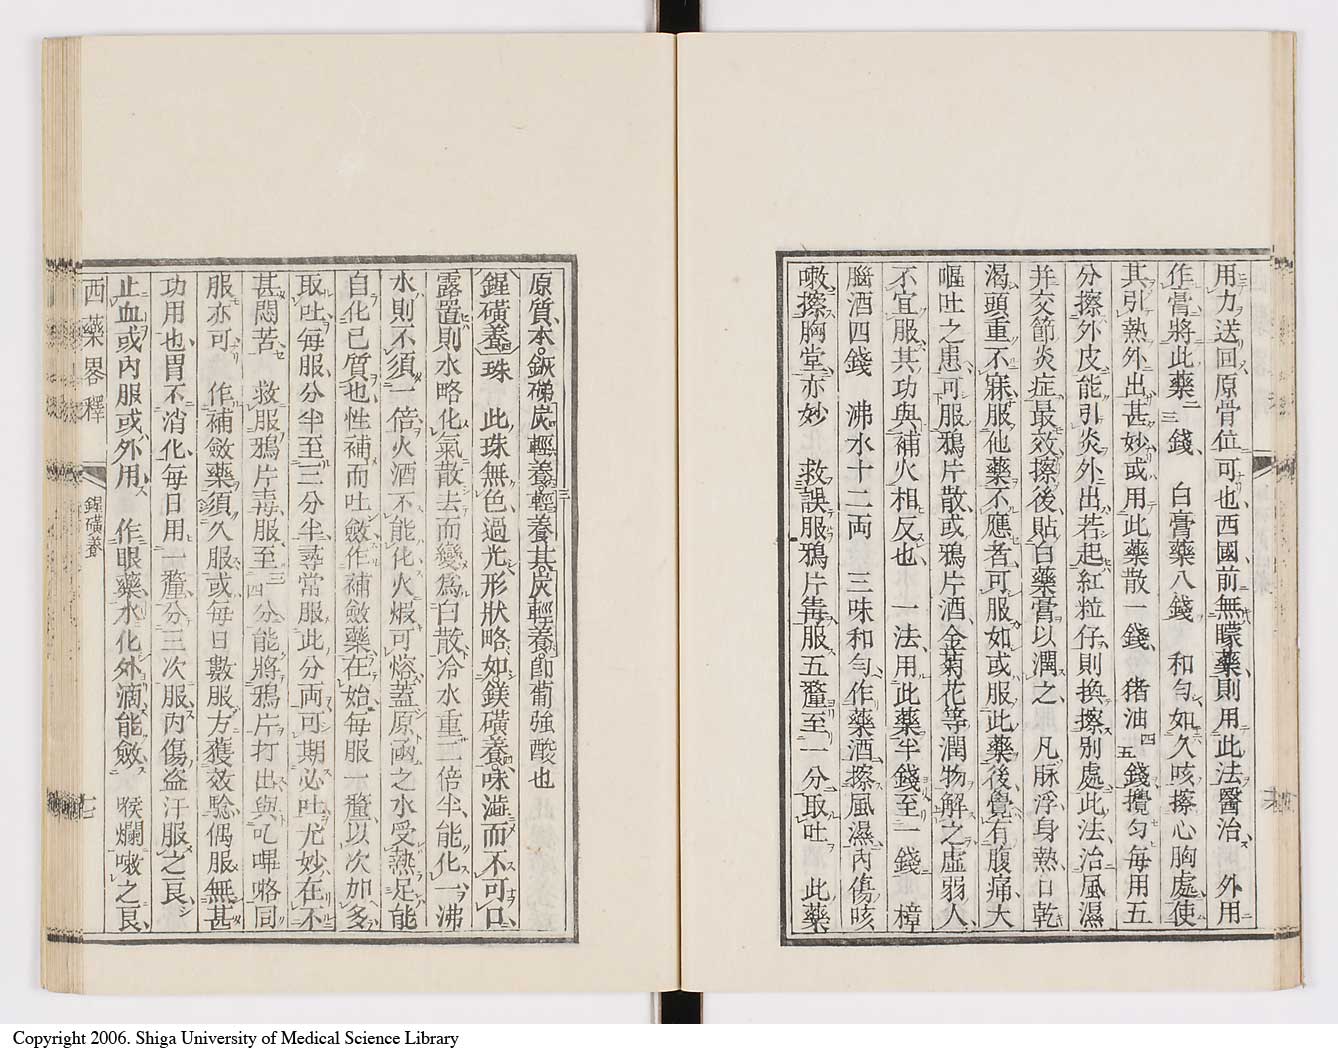 用力送回原骨位可也西國前無矇藥則用此法醫治　外用
作膏將此藥二三錢　白膏藥八錢　和勻如久咳擦心胸處使
其引熱外出甚妙或用此藥散一錢　猪油四五錢攪勻每用五
分擦外皮能引炎外出若起紅粒仔則換擦別處此法治風濕
并交節炎症最效擦後貼白藥膏以潤之　凡脉浮身熱口乾
渴頭重不寐服他藥不應者可服如或服此藥後覺有腹痛大
嘔吐之患可服鴉片散或鴉片酒金菊花等潤物解之虛弱人
不宜服其功與補火相反也　一法用此藥半錢至一錢　樟
腦酒四錢　沸水十二両　三味和勻作藥酒擦風濕內傷咳
嗽擦胸堂亦妙　救誤服鴉片毒服五釐至一分取吐　此藥
原質本鋅硫炭輕養輕養其炭輕養卽葡強酸也
鋅磺養四珠　此珠無色過光形狀略如鎂磺養四味澁而不可口
露置則水略化氣散去而變爲白散冷水重二倍半能化一沸
水則不須一倍火酒不能化火煅可熔蓋原函之水受熱足能
自化己質也性補而吐斂作補斂藥在始每服一釐以次加多
取吐每服分半至三分半尋常服此分両可期必吐尤妙在不
甚悶苦　救服鴉片毒服至三四分能將鴉片打出與吐嗶咯同
服亦可　作補斂藥須久服或每日數服方獲效驗偶服無甚
功用也胃不消化每日用一釐分三次服內傷盜汗服之良
止血或內服或外用　作眼藥水化外滴能斂　喉爛嗽之良
西藥畧釋
鋅磺養